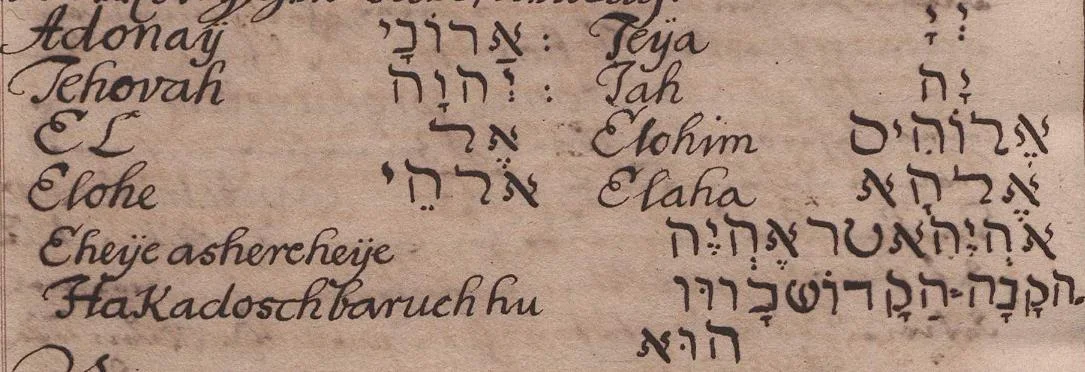 Adonaÿ אַדוֹנָי : Jeÿa יְיָ
Jehovah יְהוָה : Jah יָה
EL אֶל Elohim אֱלוֹהִים
Elohe אֹלהֵי Elaha אֱלהָא
Eheÿe ashereheÿe אֹהְיֶה אשר אֶהְיֶה
HaKadosch baruch hu הקָבָה־הַקָדוֹש בָרוּו
הוּא